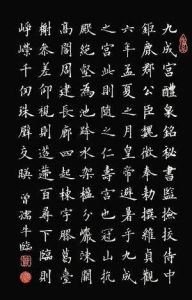 九成宮醴泉銘秘書監撿挍侍中
鉅鹿郡公臣魏徵奉勑撰維貞觀
六年孟夏之月皇帝避暑乎九成
之宮此則隨之仁壽宮也冠山抗
殿絕壑為池跨水架楹分巖竦闕
高閣周建長廊四起棟宇膠葛臺
榭參差仰視則迢遰百尋下臨則
崢嶸千仞珠壁交映 牛臨